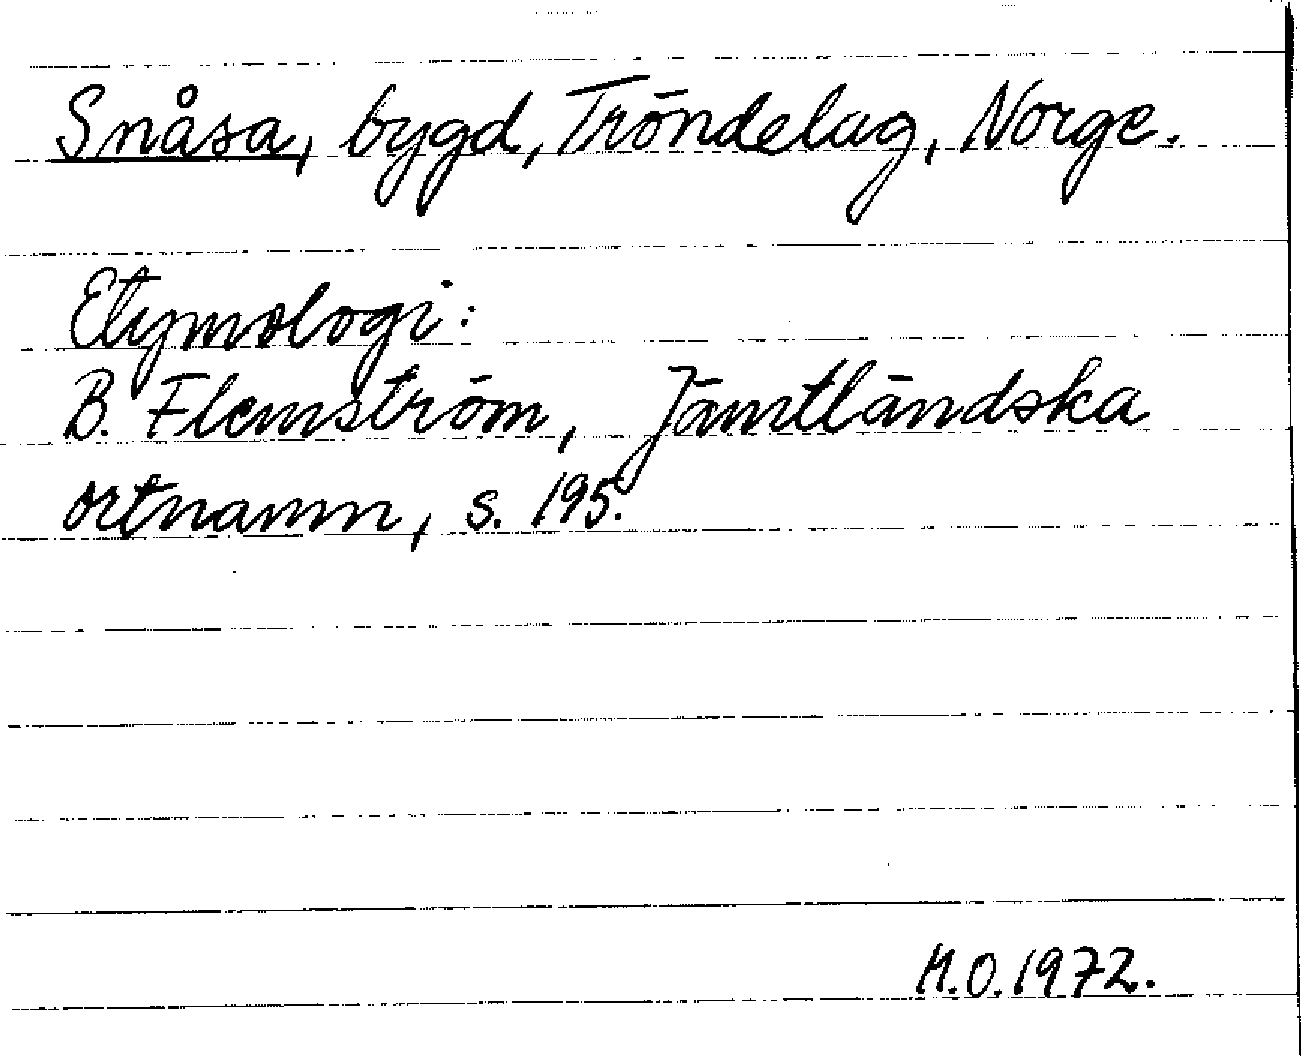 Snåsa, bygd, Tröndelag, Norge.
Etymologi:
B. Flemström, Jämtländska
ortnamn, s. 195.
M.O. 1972.